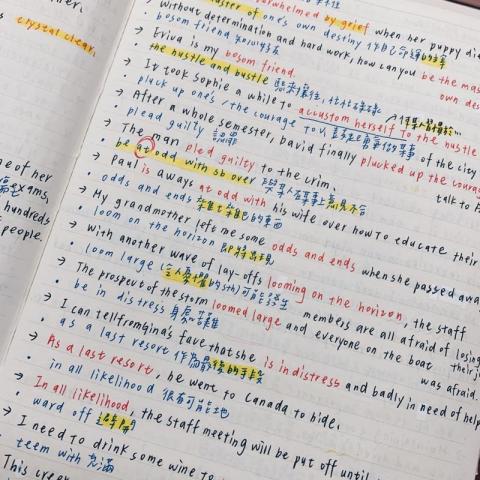 crystal clear.
one of her
exams,
hundreds
people.
overwhelmed by grief when her puppy die
master of one's own destiny
→ Without determination and hard work, how can you be the mas
own des
• bosom friend
→ Erivia is my bosom friend.
• the hustle and bustle 熙來攘往,
→ It took Sophie a while to accustom herself to the hustle
of the city
• pluck up one's/the courage to V.
→ After a whole semester, David finally plucked up the courag
talk to
• plead guilty 認罪
→ The man pled guilty to the crim.
• be at odd with sb over 與某人在某事上意見不合
→ Paul is aways at odd with his wife over how to educate their
• odds and ends 的東西
→ My grandmother left me some odds and ends when she passed awa
• loom on the horizon 即將出現
→ With another wave of lay-offs looming on the horizon, the staff
members are all afraid of losing
their jo
• loom large (令人憂心的sth)可能發生
→ The prospect of the storm loomed large and everyone on the boat
was afraid.
• be in distress 身處苦難
→ I can tell from Gina's face that she is in distress and badly in need of help
• as a last resort 作為最後的手段
→ As a last resort, he went to Canada to hide.
• in all likelihood 很有可能地
→ In all likelihood, the staff meeting will be put off until
• ward off
→ I need to drink some wine to
• teem with 充滿
This